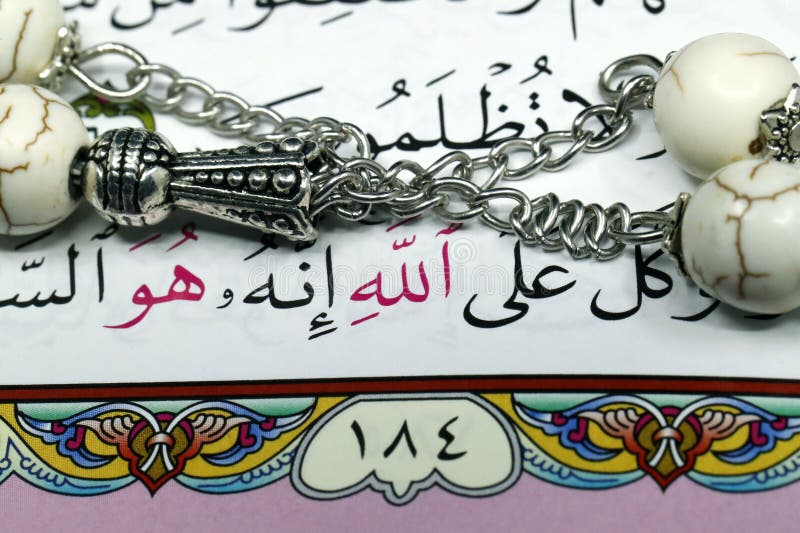 لَا تُظْلَمُو
وَكَّلْ عَلَى ٱللَّهِ إِنَّهُۥ هُوَ ٱلسَّ
١٨٤